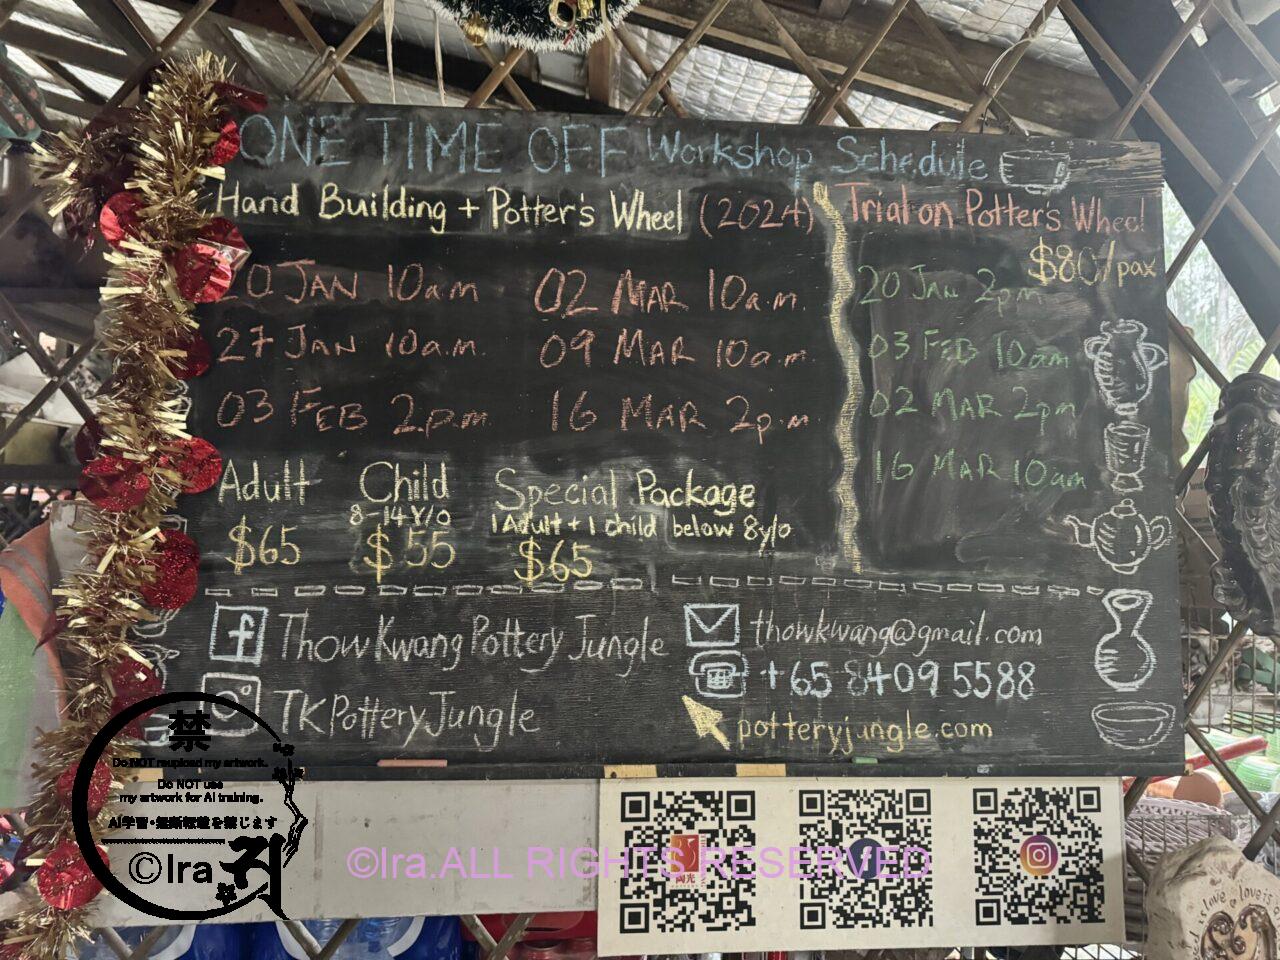 ONE TIME OFF Workshop Schedule
Hand Building + Potter's Wheel (2024)
20 JAN 10a.m
02 MAR 10a.m.
27 JAN 10a.m.
09 MAR 10a.m.
03 FEB 2p.m.
16 MAR 2p.m
Adult
$65
Child
8-14 Y/O
$55
Special Package
1 Adult + 1 child below 8y/o
$65
Trial on Potter's Wheel
$80/pax
20 Jan 2pm
03 FEB 10am
02 MAR 2pm
16 MAR 10am
f ThowKwang Pottery Jungle
TKPotteryJungle
thowkwang@gmail.com
+65 8409 5588
potteryjungle.com
禁
Do NOT reupload my artwork.
Do NOT use
my artwork for AI training.
AI学習・無断転載を禁じます
©Ira
©Ira.ALL RIGHTS RESERVED
陶光